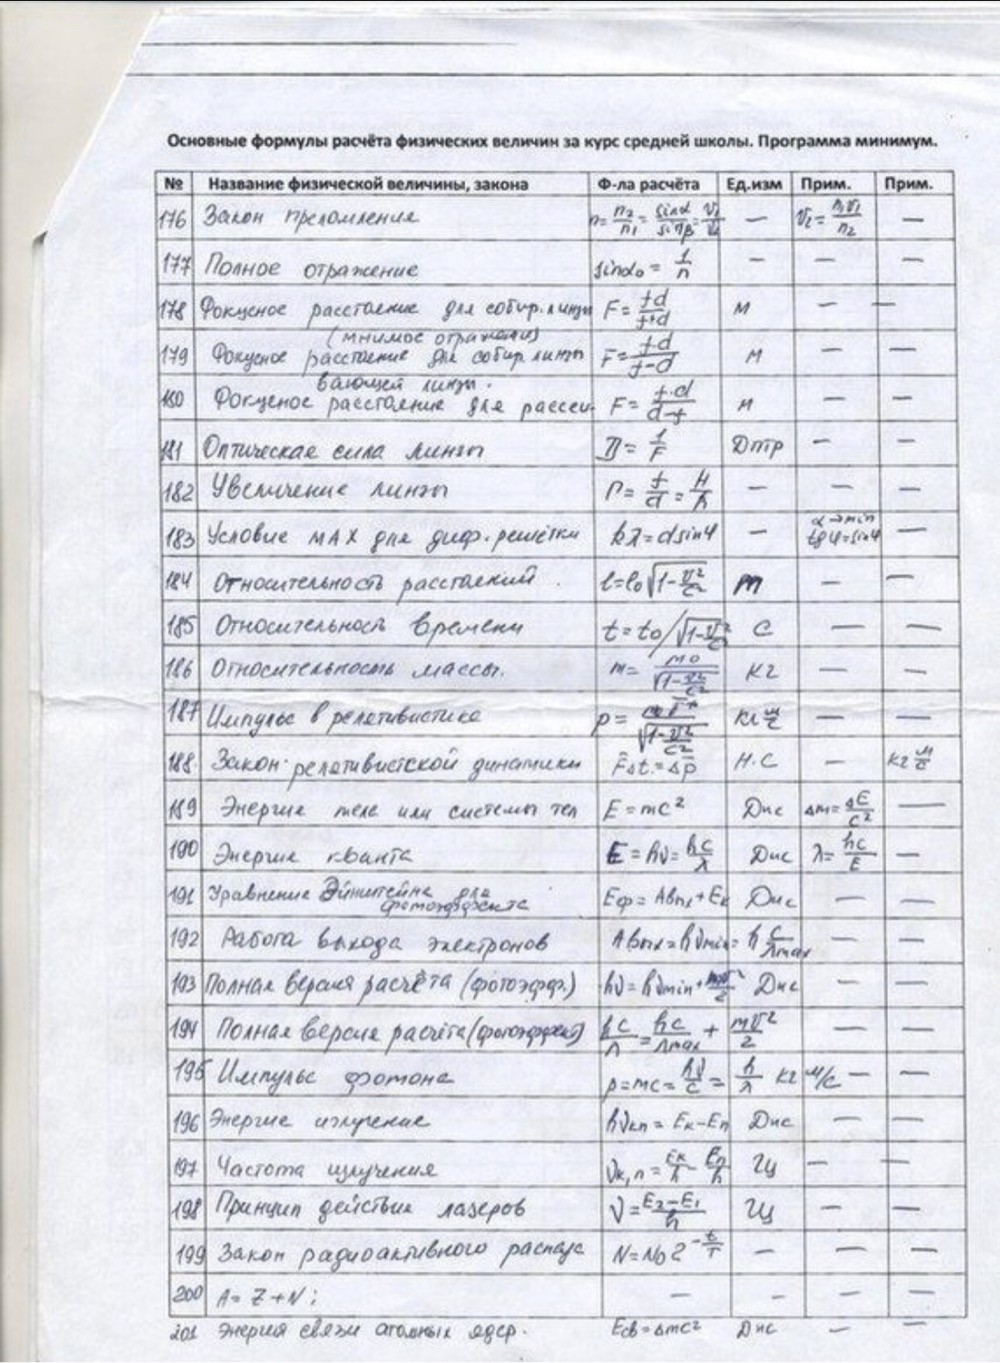 Основные формулы расчёта физических величин за курс средней школы. Программа минимум.
№ Название физической величины, закона Ф-ла расчёта Ед.изм Прим. Прим.
176 Закон преломления n=n₂/n₁=sinα/sinβ=v₁/v₂ — v₂=n₁v₁/n₂ —
177 Полное отражение sinα₀=1/n — — —
178 Фокусное расстояние для собир. линзы F=fd/f+d м — —
(мнимое отражение)
179 Фокусное расстояние для собир линзы F=fd/f-d м — —
вающей линзы.
180 Фокусное расстояние для рассеи- F=f·d/d-f м — —
181 Оптическая сила линзы D=1/F Дптр — —
182 Увеличение линзы Г=f/d=H/h — — —
183 Условие МАХ для диф. решётки kλ=dsinφ — α→min tgφ=sinφ —
184 Относительность расстояний. l=l₀√1-v²/c² м — —
185 Относительность времени t=t₀/√1-v²/c² с — —
186 Относительность массы. m=m₀/√1-v²/c² кг — —
187 Импульс в релятивистике p= /√1-v²/c² кг м/с — —
188. Закон релятивистской динамики F̄Δt=Δp̄ Н·с — кг м/с
189 Энергия тела или системы тел E=mc² Дж Δm=ΔE/c² —
190 Энергия кванта E=hν=hc/λ Дж λ=hc/E —
191 Уравнение Эйнштейна для фотоэффекта Eф=Aвых+Eк Дж — —
192 Работа выхода электронов Aвых=hνmin=hc/λmax — —
193 Полная версия расчёта (фотоэфф.) hν=hνmin+mv²/2 Дж — —
194 Полная версия расчёта (фотоэффект) hc/λ=hc/λmax+mv²/2 — —
195 Импульс фотона p=mc=hν/c=h/λ кг м/с — —
196 Энергия излучение hνкп=Eк-Eп Дж — —
197 Частота излучения νк,п=Eк/h-Eп/h Гц — —
198 Принцип действия лазеров ν=E₂-E₁/h Гц — —
199 Закон радиоактивного распада N=N₀2^(-t/T) — — —
200 A=Z+N; — — — —
201 Энергия связи атомных ядер. Eсв=Δmc² Дж — —